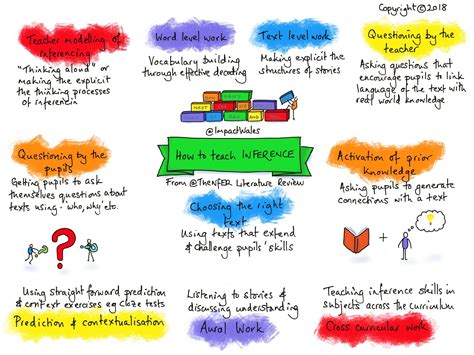 Copyright©2018
Teacher modelling of
inferencing
"Thinking aloud" or
making the explicit
the thinking processes
of inferencin
Word level work
Vocabulary building
through effective decoding
Text level work
Making explicit the
structures of stories
Questioning by the
teacher
Asking questions that
encourage pupils to link
language of the text with
real world knowledge
@ImpactWales
How to teach INFERENCE
From @TheNFER Literature Review
Questioning by the
pupils
Getting pupils to ask
themselves questions about
texts using - who, why etc.
Choosing the right
text
Using texts that extend
& challenge pupils' skills
Activation of prior
knowledge
Asking pupils to generate
connections with a text
?
+
Using straight forward prediction
& context exercises eg Cloze tests
Prediction & contextualisation
Listening to stories &
discussing understanding
Aural Work
Teaching inference skills in
subjects across the curriculum
Cross curricular work